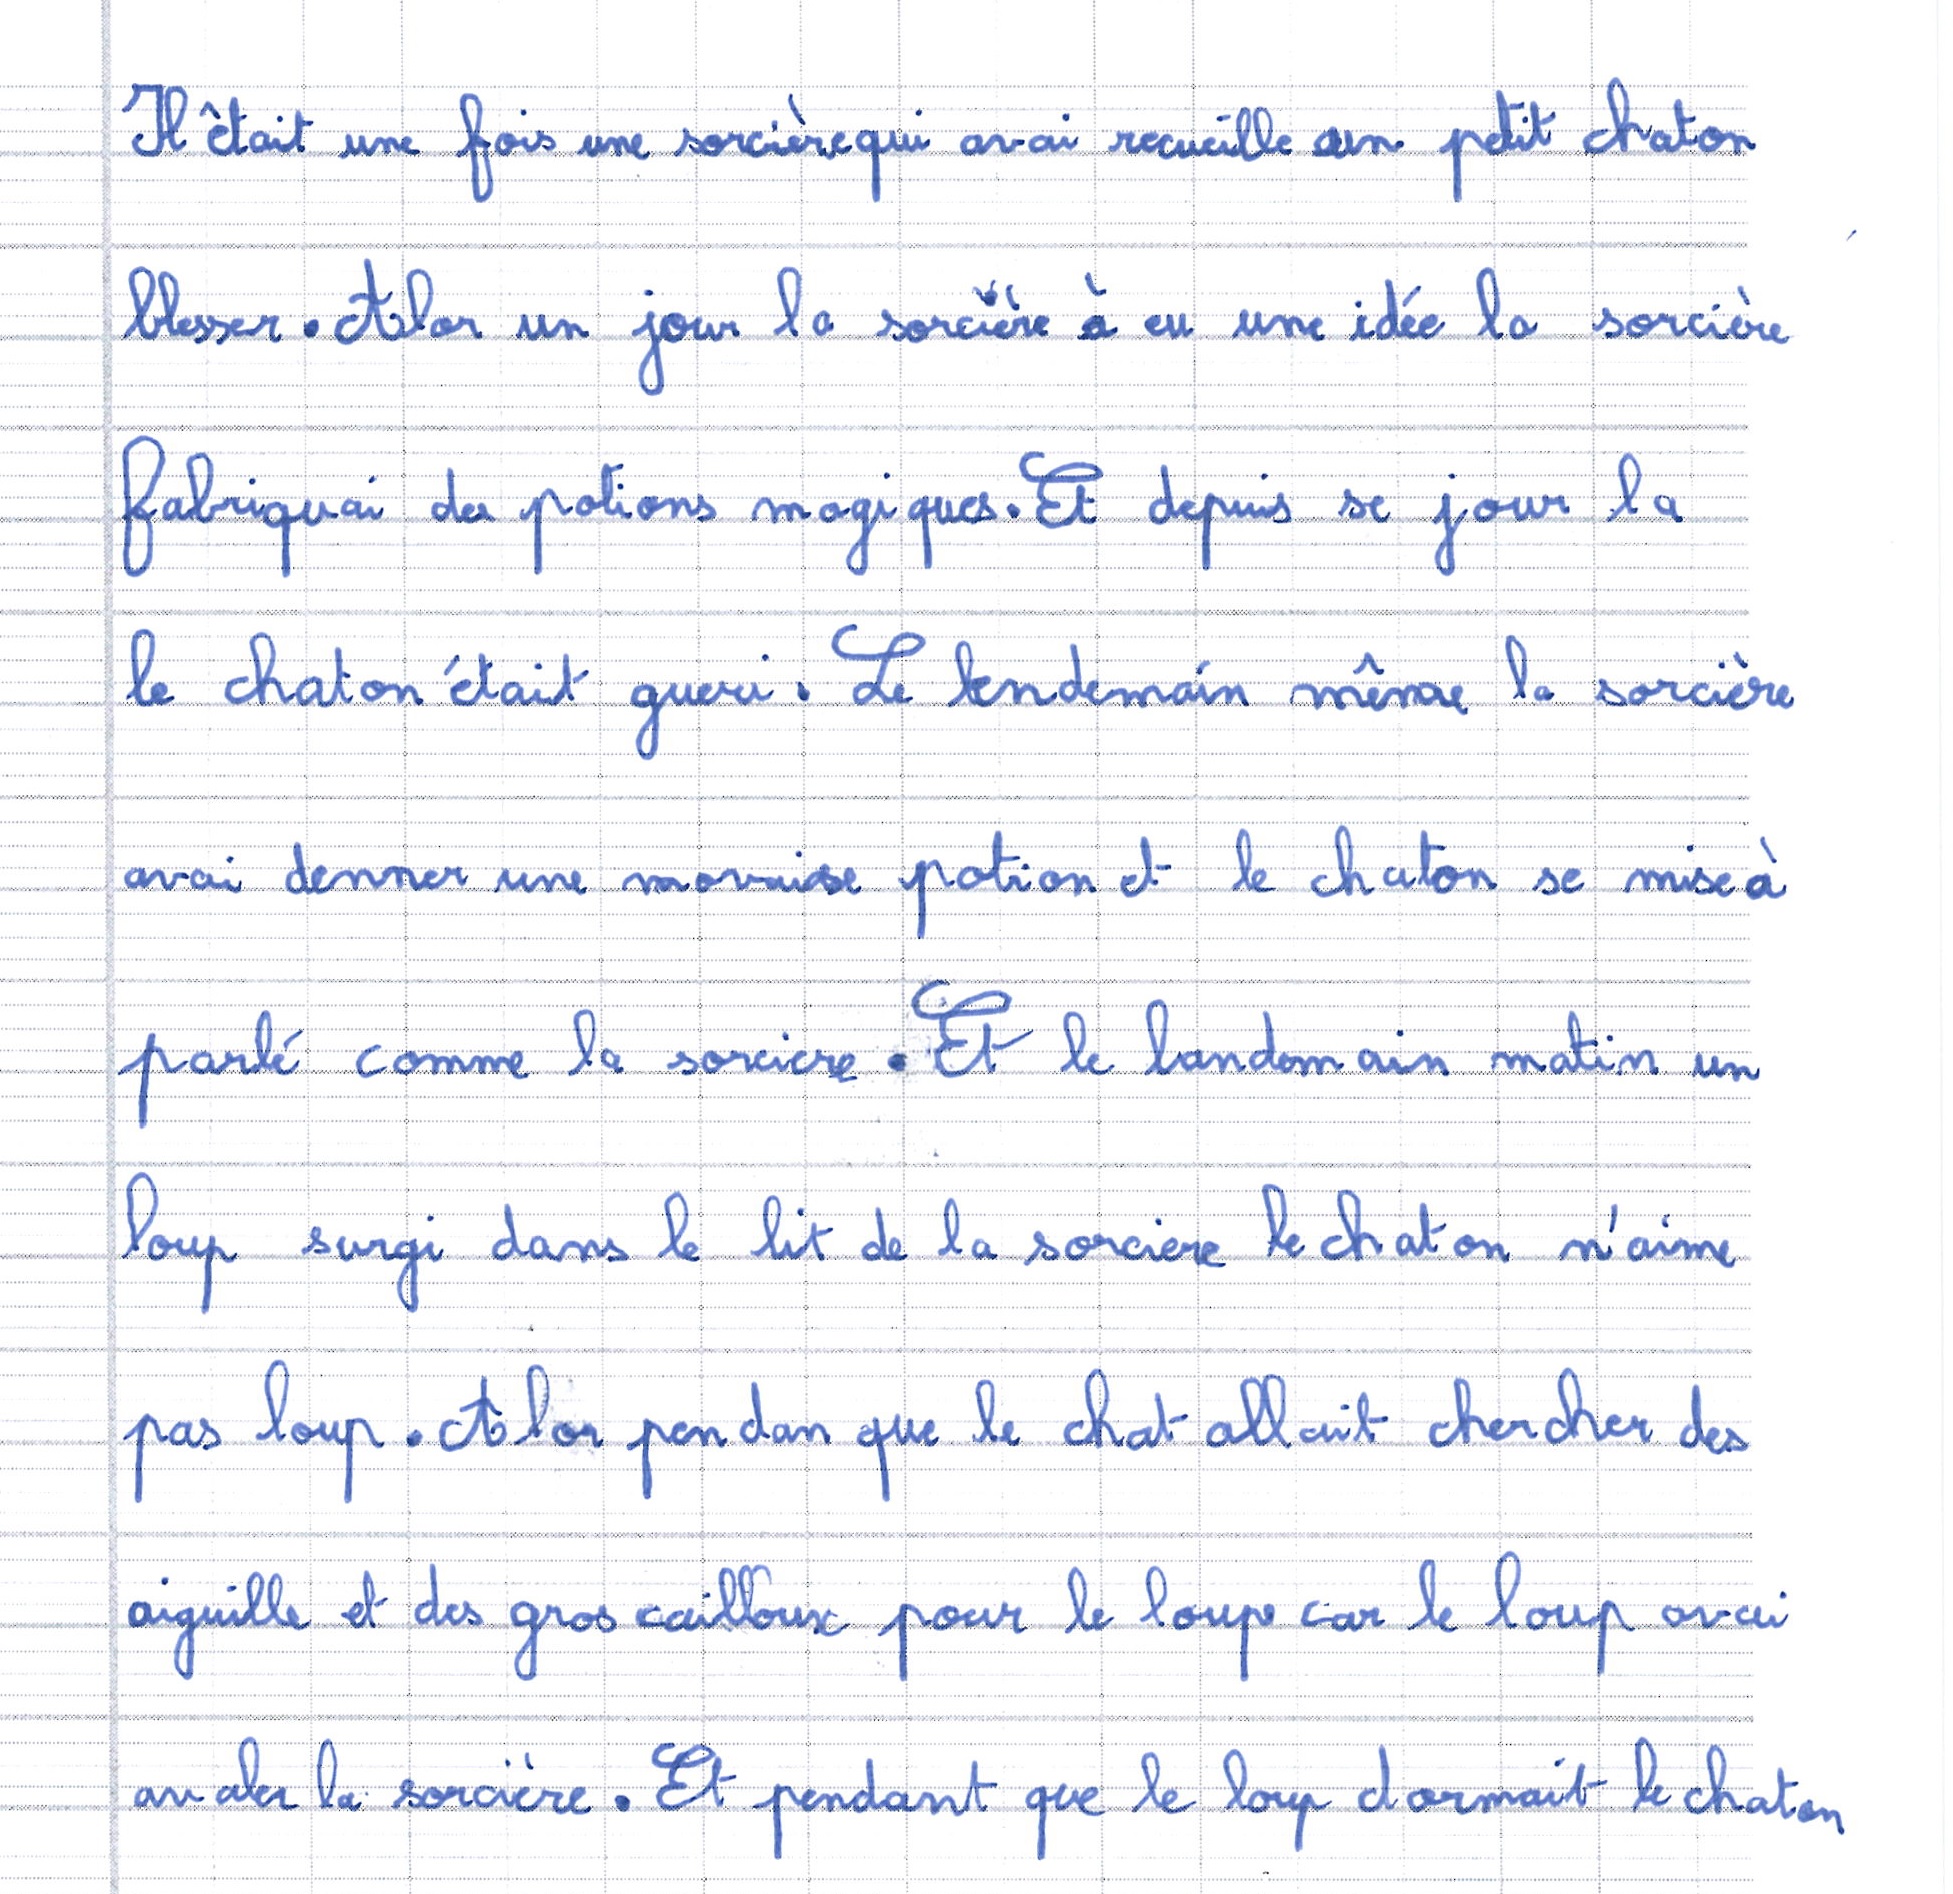 Il était une fois une sorcière qui avai recueille un petit chaton
blesser. Alor un jour la sorcière à eu une idée la sorcière
fabriquai des potions magiques. Et depuis se jour la
le chaton était gueri. Le lendemain même la sorcière
avai denner une movaise potion et le chaton se mise à
parlé comme la sorciere. Et le landemain matin un
loup surgi dans le lit de la sorciere le chaton n'aime
pas loup. Alor pendan que le chat allait chercher des
aiguille et des gros cailloux pour le loup car le loup avai
avaler la sorcière. Et pendant que le loup dormait le chaton